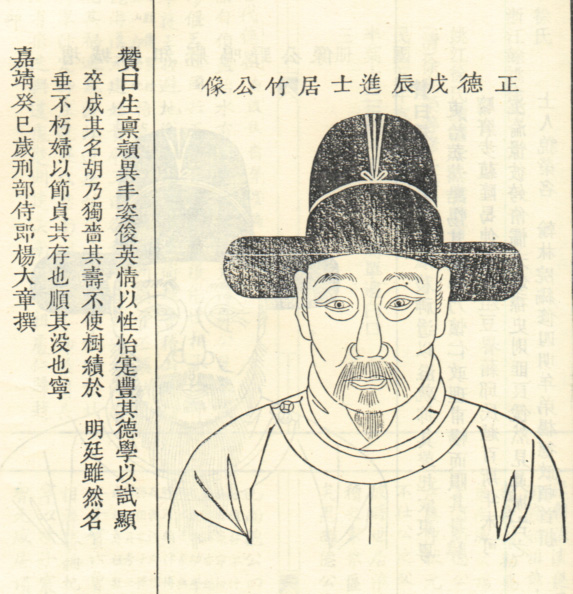 正德戊辰進士居竹公像
贊曰生禀穎異丰姿俊英情以性怡寔豐其德學以試顯
卒成其名胡乃獨嗇其壽不使樹績於　明廷雖然名
垂不朽婦以節貞其存也順其没也寧
嘉靖癸巳歲刑部侍郎楊大章撰